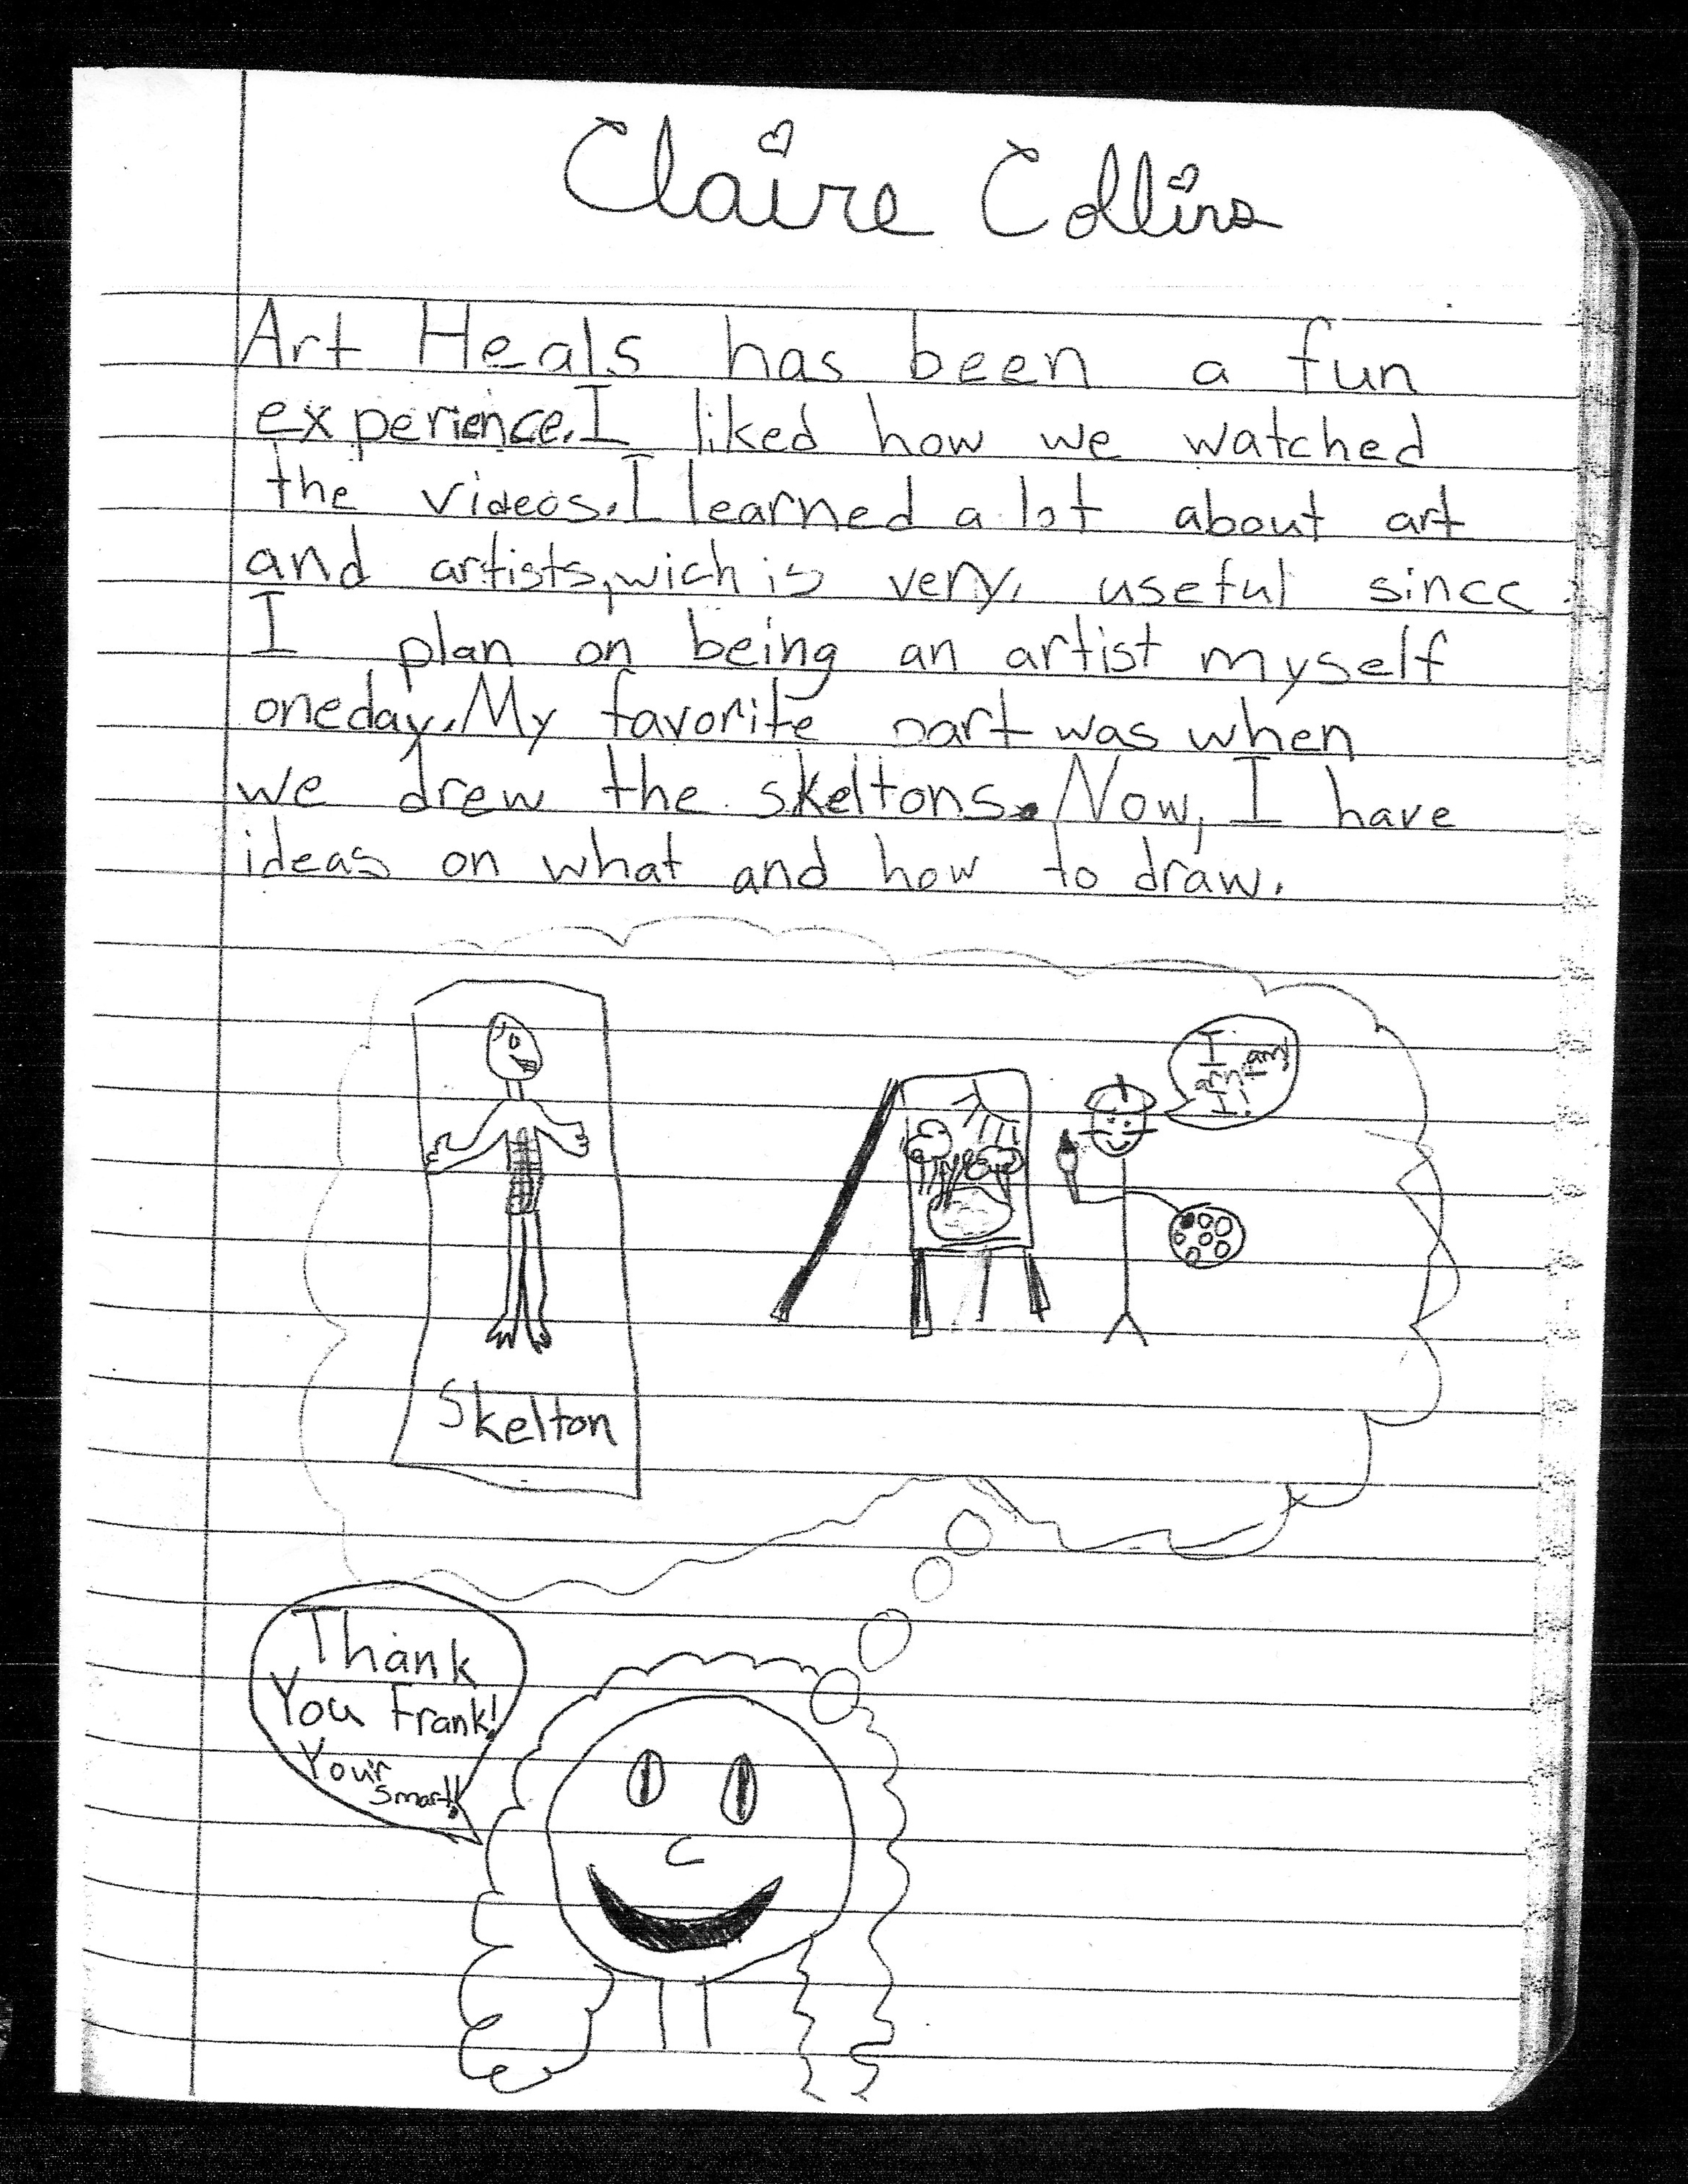 Claire Collins
Art Heals has been a fun
experience. I liked how we watched
the videos. I learned a lot about art
and artists, wich is very, useful since
I plan on being an artist myself
oneday. My favorite part was when
we drew the skeltons. Now, I have
ideas on what and how to draw.
I
am
am I!
Skelton
Thank
You Frank!
Your
smart!